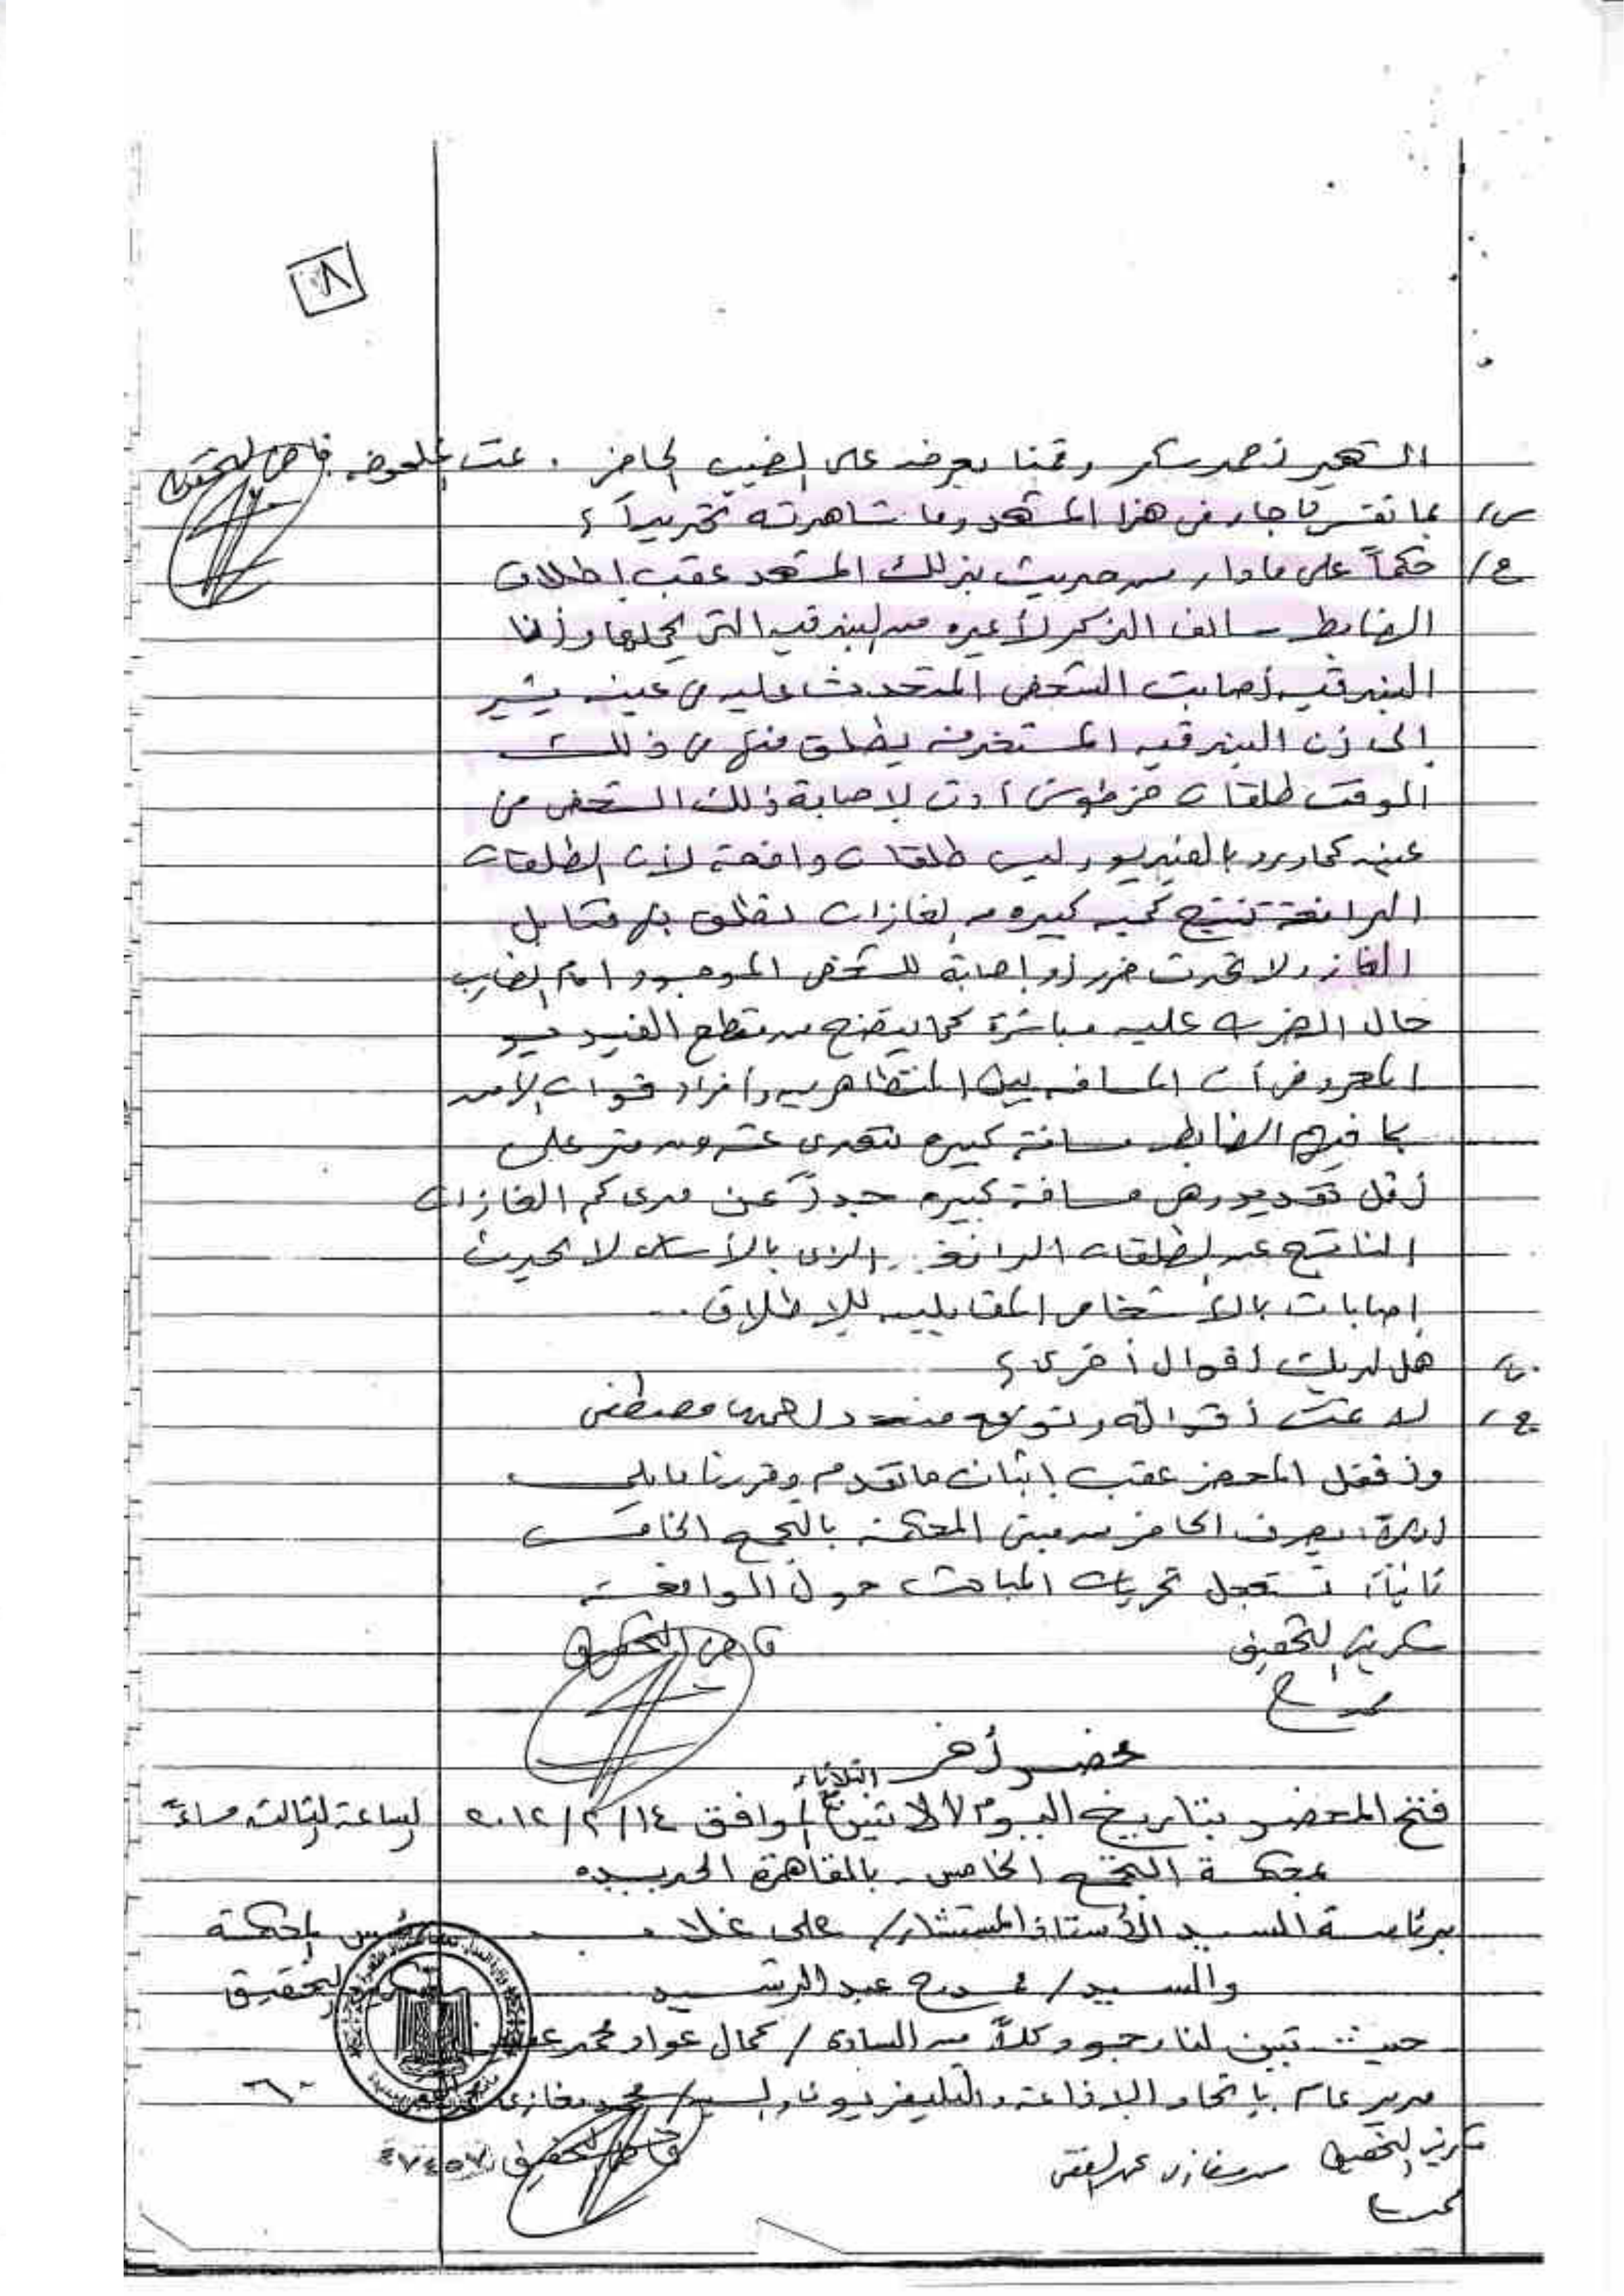 ٨
الشهير بأحمد سكر وقمنا بعرضه على الخبير الحاضر . تمت الملحوظه قاضى التحقيق
س/ بما تفسر ما جاء فى هذا المشهد وما شاهدته تحديداً ؟
ج/ حكماً على ما دار من حديث بذلك المشهد عقب إطلاق
الضابط سالف الذكر لأعيره من البندقيه التى يحملها وأن
البندقيه أصابت الشخص المتحدث عليه فى عينه يشير
إلى أن البندقيه المستخدمه يطلق منها فى ذلك
الوقت طلقات خرطوش أدت لإصابة ذلك الشخص من
عينه كما ورد بالفيديو وليس طلقات دافعة لأن الطلقات
الدافعة تنتج كميه كبيره من الغازات تطلق بها قنابل
الغاز ولا تحدث ضرر أو إصابة للشخص الموجود أمام الضارب
حال الضرب عليه مباشرة كما يتضح من مقطع الفيديو
المعروض أن المسافه بين المتظاهرين وأفراد قوات الأمن
بما فيهم الضابط مسافة كبيره تتعدى عشرون متر على
أقل تقدير وهى مسافة كبيره جداً عن مدى كم الغازات
الناتج عن الطلقات الدافعة .. الذى بالأساس لا يحدث
إصابات بالأشخاص المقابلين للإطلاق ..
س/ هل لديك أقوال أخرى ؟
ج/ لا تمت أقواله وتوقع منه د/ مصطفى
وأقفل المحضر عقب إثبات ما تقدم وقررنا ما يلى
أولاً: يصرف الحاضر من مبنى المحكمة بالتجمع الخامس
ثانياً: تستعجل تحريات المباحث حول الواقعة
سكرتير التحقيق قاضى التحقيق
محضر أخر
الثلاثاء
فتح المحضر بتاريخ اليوم الاثنين الموافق ١٤/٢/٢٠١٢ الساعة الثالثة مساءً
بمحكمة التجمع الخامس - بالقاهرة الجديده
برئاسة السيد الأستاذ المستشار/ على علام رئيس المحكمة
والسيد / ممدوح عبد الرشيد سكرتير التحقيق
حيث تبين لنا وجود كلاً من السادة / كمال عواد محمد
مدير عام بإتحاد الإذاعة والتليفزيون والسيد/ محمد مغازى
سكرتير التحقيق محمد مغازى قاضى التحقيق